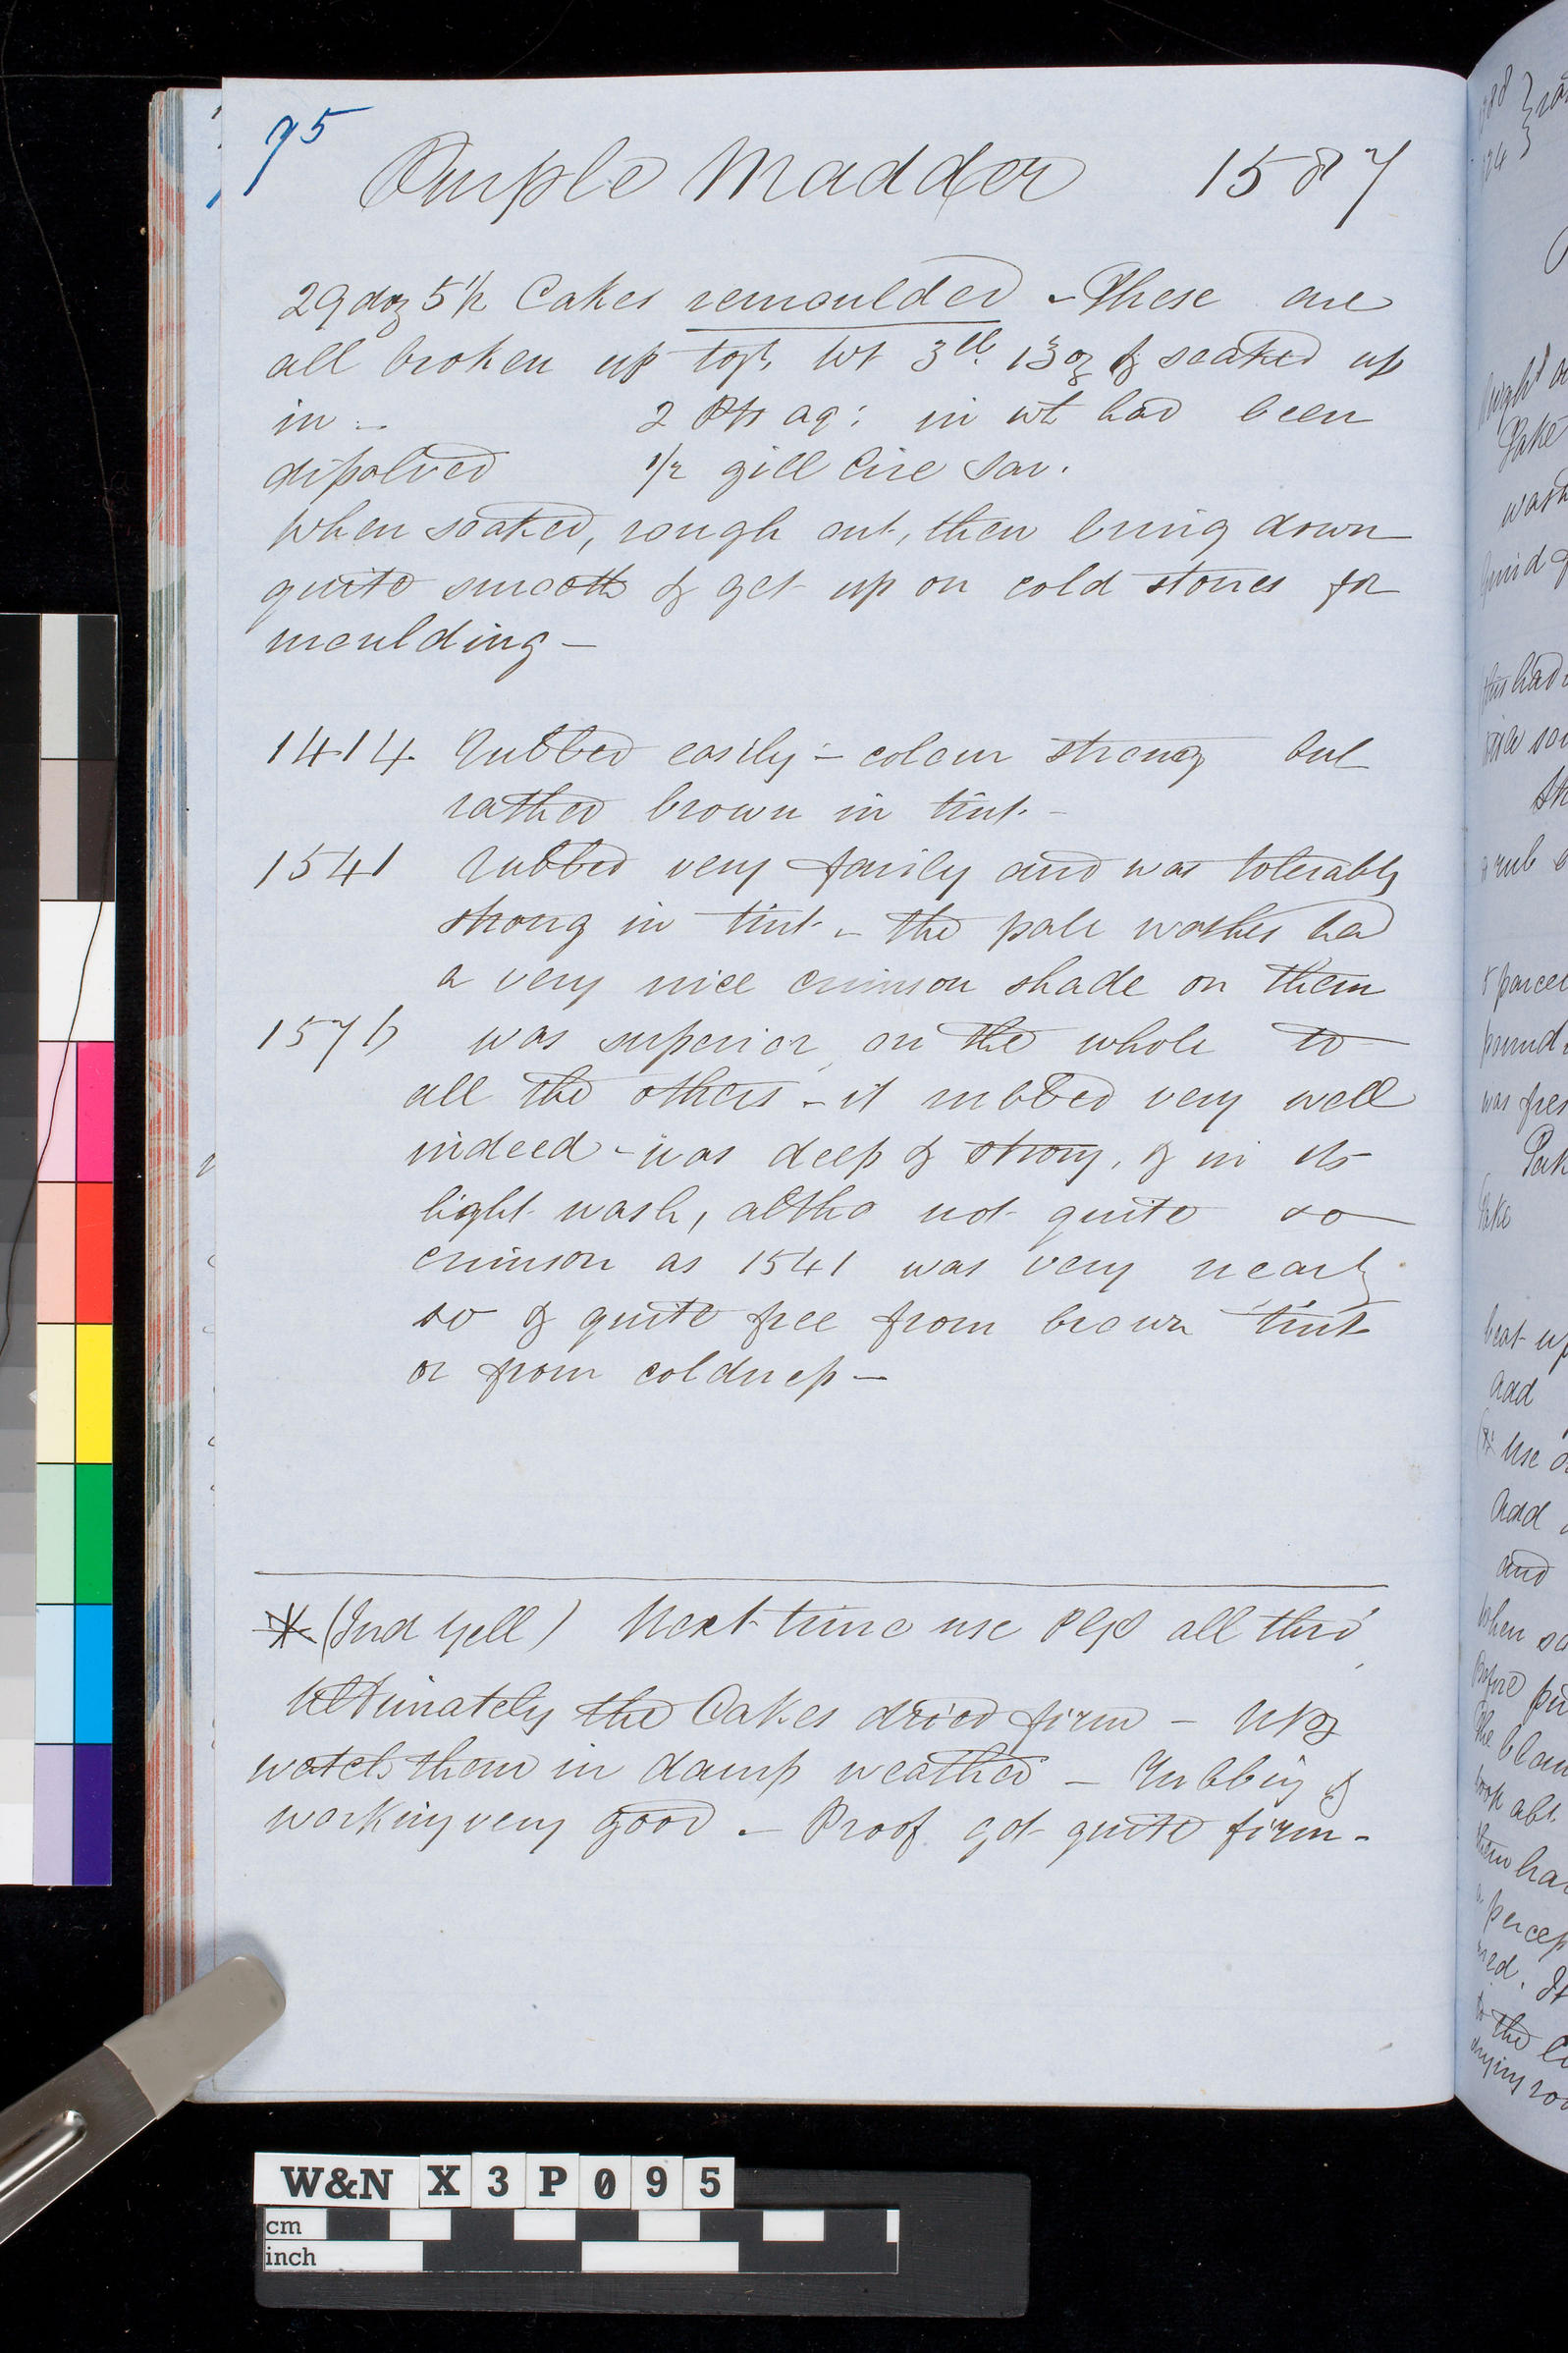 95
Purple Madder 1587
29 doz 5½ Cakes remoulded - These are
all broken up togr. Wt 3lb 13oz & soaked up
in - 2 Pts aq: in wh had been
dissolved ½ gill
When soaked, rough out, then bring down
quite smooth & get up on cold stones for
moulding -
1414. Rubbed easily - colour strong but
rather brown in tint. -
1541 Rubbed very fairly and was tolerably
strong in tint - the pale washes had
a very nice crimson shade on them
1576 was superior on the whole to
all the others - it rubbed very well
indeed - was deep & strong, & in its
light wash, altho not quite so
crimson as 1541 was very nearly
so & quite free from brown tint
or from coldness -
* (Ind Yell) Next time use all thro'
Ultimately the Cakes dried firm -
watch them in damp weather - Rubbing &
working very good. - Proof got quite firm -
right
Lake
wash
grind &
this had
5 parcel
pound
was
Lake
beat up
add
use
add
and
When
before
The
took abt.
them
percep
It
to the
drying
W&N X3P095
cm
inch